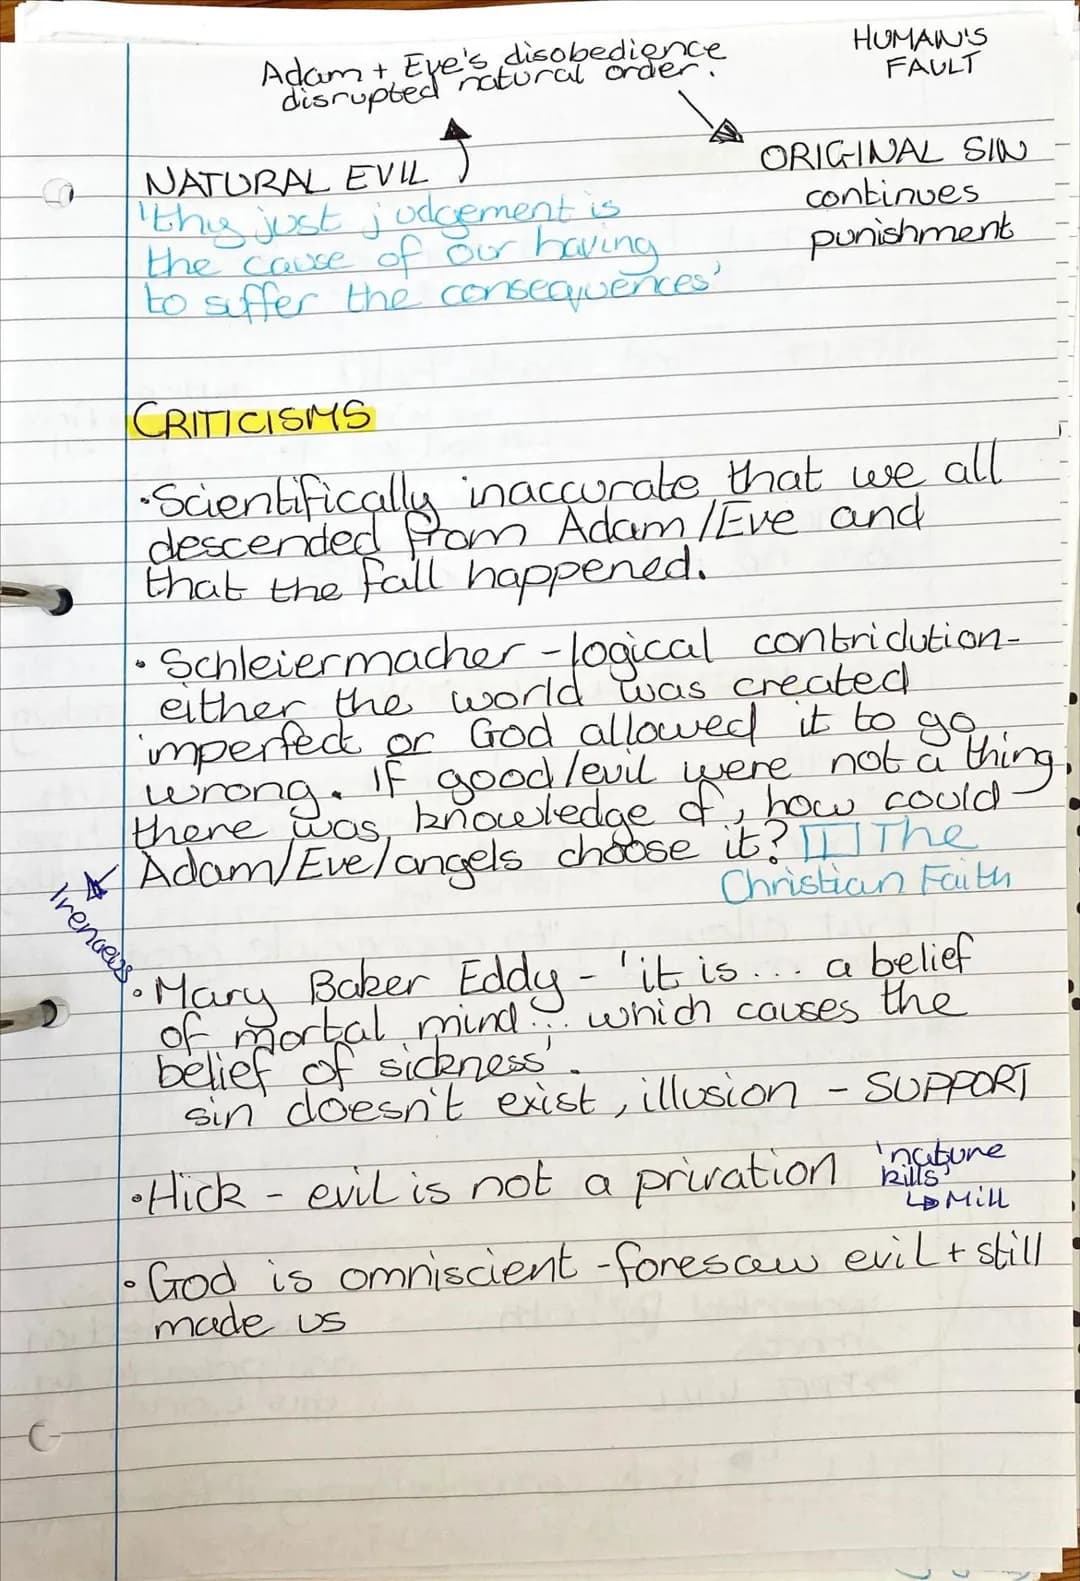 Adam + Eve's disobedience
disrupted natural order.
HUMAN'S
FAULT
NATURAL EVIL
ORIGINAL SIN
continues
punishment
'thy just judgement is
the cause of our having
to suffer the consequences'
CRITICISMS
•Scientifically inaccurate that we all
descended from Adam/Eve and
that the fall happened.
• Schleiermacher - logical contridution-
either the world was created
imperfect or God allowed it to go
wrong. If good/evil were not a thing,
there was knowledge of, how could
Adam/Eve/angels choose it? The
Christian Faith
Irenaeus
• Mary Baker Eddy - 'it is... a belief
of mortal mind... which causes the
belief of sickness'.
sin doesn't exist, illusion - SUPPORT
• Hick - evil is not a privation
'nature
kills'
↳ Mill
• God is omniscient - foresaw evil + still
made us